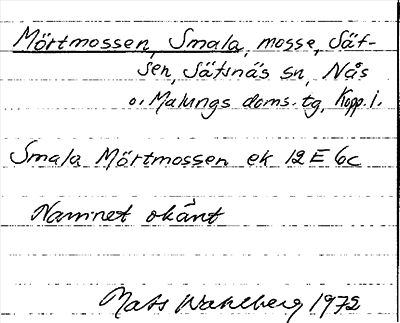 Mörtmossen, Smala, mosse, Säf-
sen, Säfsnäs sn, Nås
o. Malungs doms. tg, Kopp. l.
Smala Mörtmossen ek 12 E 6c
Namnet okänt
Mats Wahlberg 1972